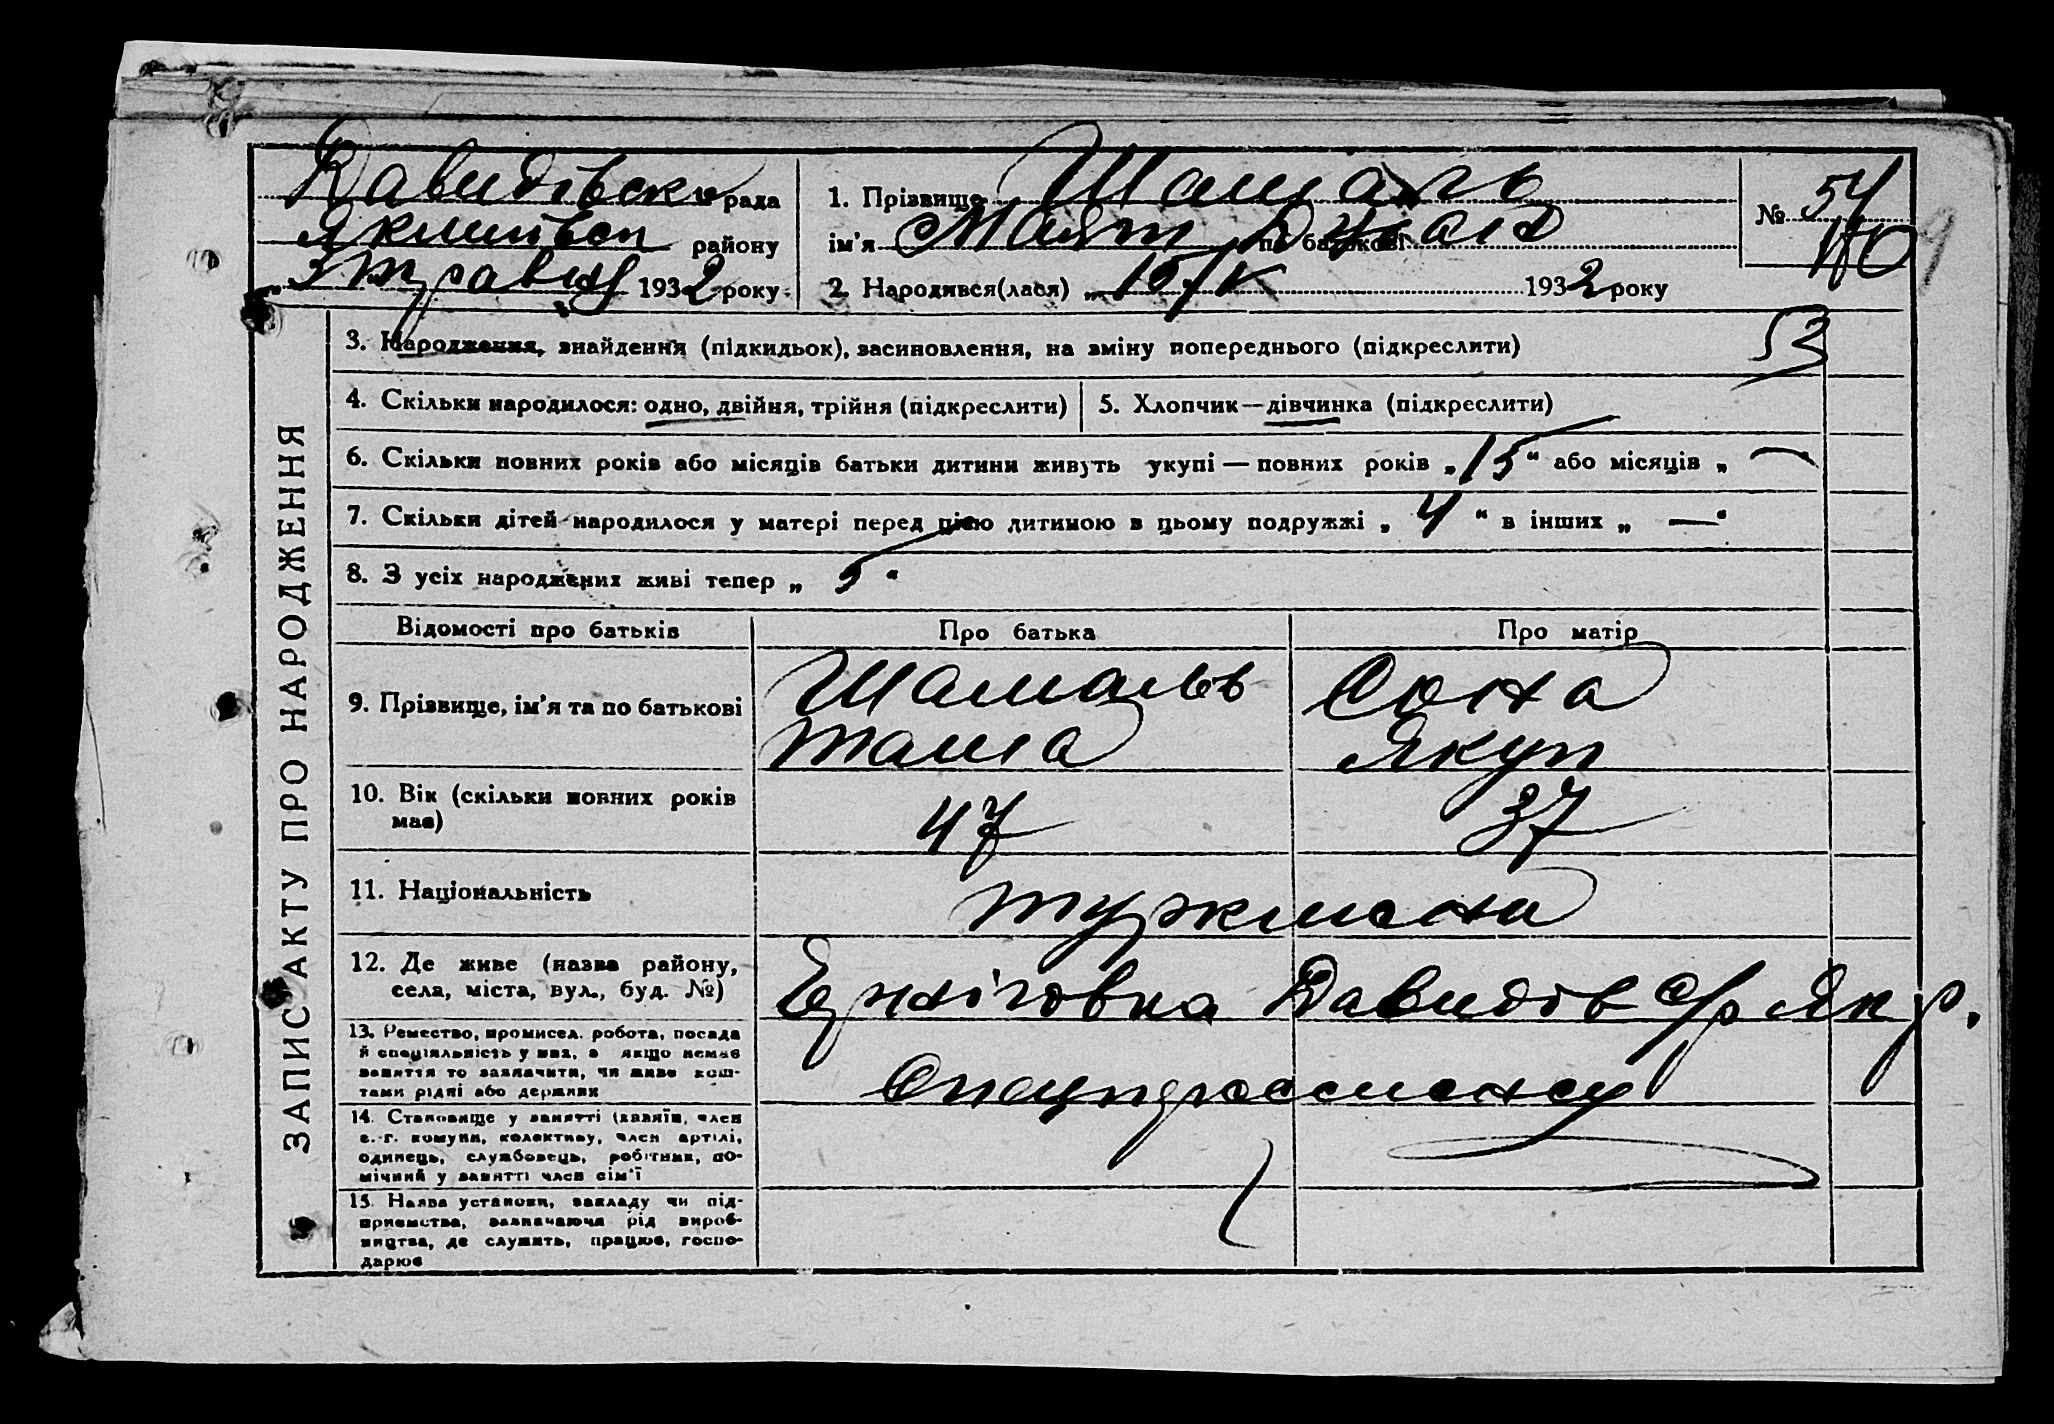 Давидівська рада
Якимівськ району
„ 3 травня 1932 року
1. Прізвище Шамаль
ім'я по батькові
№ 54
2. Народився(лася) „ 15/IV 1932 року
53
3. Народження, знайдення (підкидьок), засиновлення, на зміну попереднього (підкреслити)
4. Скільки народилося: одно, двійня, трійня (підкреслити)
5. Хлопчик—дівчинка (підкреслити)
6. Скільки повних років або місяців батьки дитини живуть укупі — повних років „ 15 “ або місяців „ —
7. Скільки дітей народилося у матері перед цією дитиною в цьому подружжі „ 4 “ в інших „ — “
8. З усіх народжених живі тепер „ 5 “
ЗАПИС АКТУ ПРО НАРОДЖЕННЯ
Відомості про батьків
Про батька
Про матір
9. Прізвище, ім'я та по батькові
Шамаль
Сона
Якуп
10. Вік (скільки повних років
має)
47
37
11. Національність
туркмени
12. Де живе (назва району,
села, міста, вул., буд. №)
Давидів с/р Як р.
13. Ремество, промисел, робота, посада
й спеціяльність у них, а якщо немає
заняття то зазначити, чи живе кош-
тами рідні або держави
14. Становище у занятті (хазяїн, член
с.-г. комуни, колективу, член артілі,
одинець, службовець, робітник, по-
мічний у занятті член сім'ї
15. Назва установи, закладу чи під-
приємства, зазначаючи рід вироб-
ництва, де служить, працює, госпо-
дарює